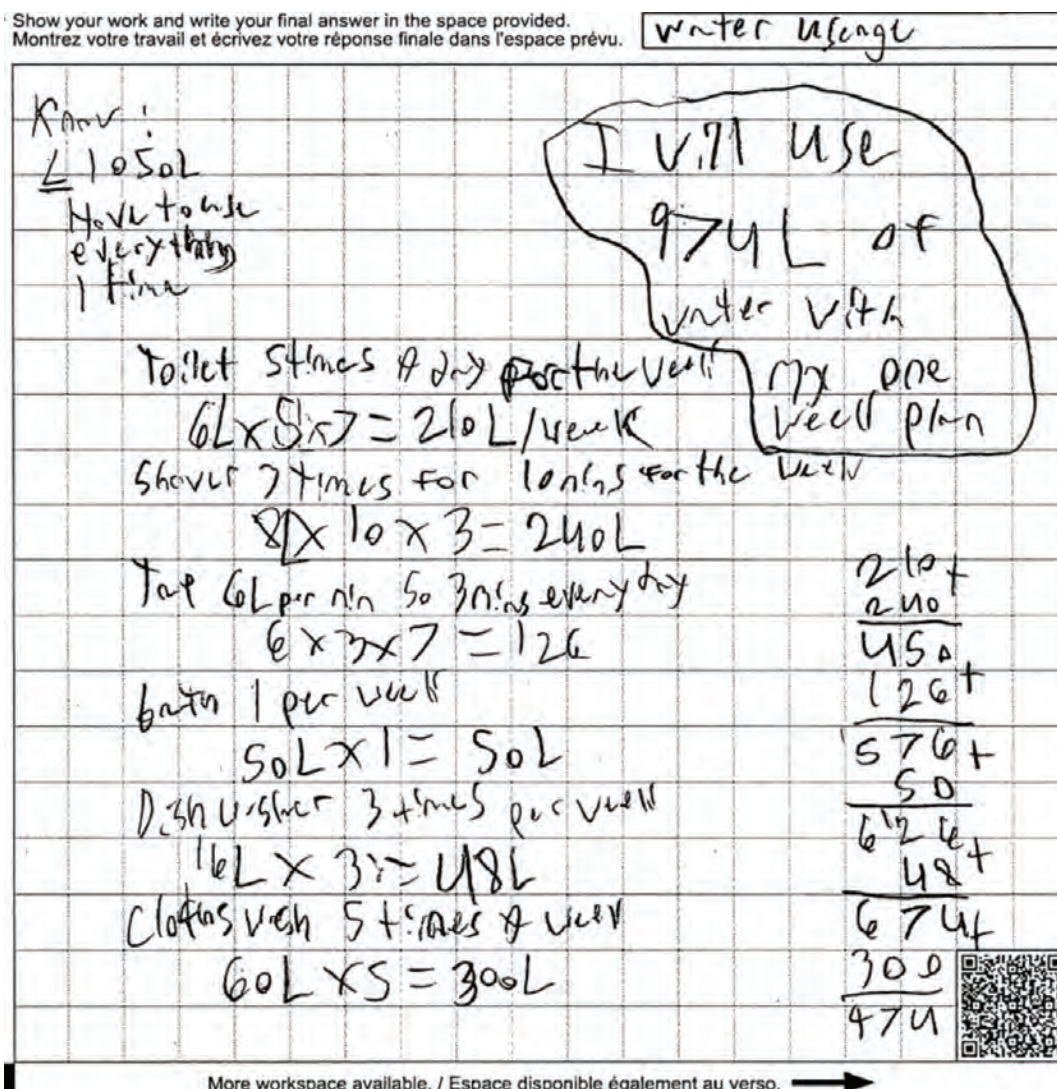 Show your work and write your final answer in the space provided.
Montrez votre travail et écrivez votre réponse finale dans l'espace prévu.
Water Usage
Know :
≤ 1050L
Have to use
everything
1 time
I will use
974 L of
water with
my one
week plan
Toilet 5 times A day for the week
6L x 5 x 7 = 210L/week
Shower 3 times for 10 mins for the week
8L x 10 x 3 = 240L
Tap 6L per min so 3 mins everyday
6 x 3 x 7 = 126
bath 1 per week
50L x 1 = 50L
Dishwasher 3 times per week
16L x 3 = 48L
Cloths wash 5 times A week
60L x 5 = 300L
210 +
240
450
126 +
576 +
50
626 +
48
674 +
300
974
More workspace available. / Espace disponible également au verso.